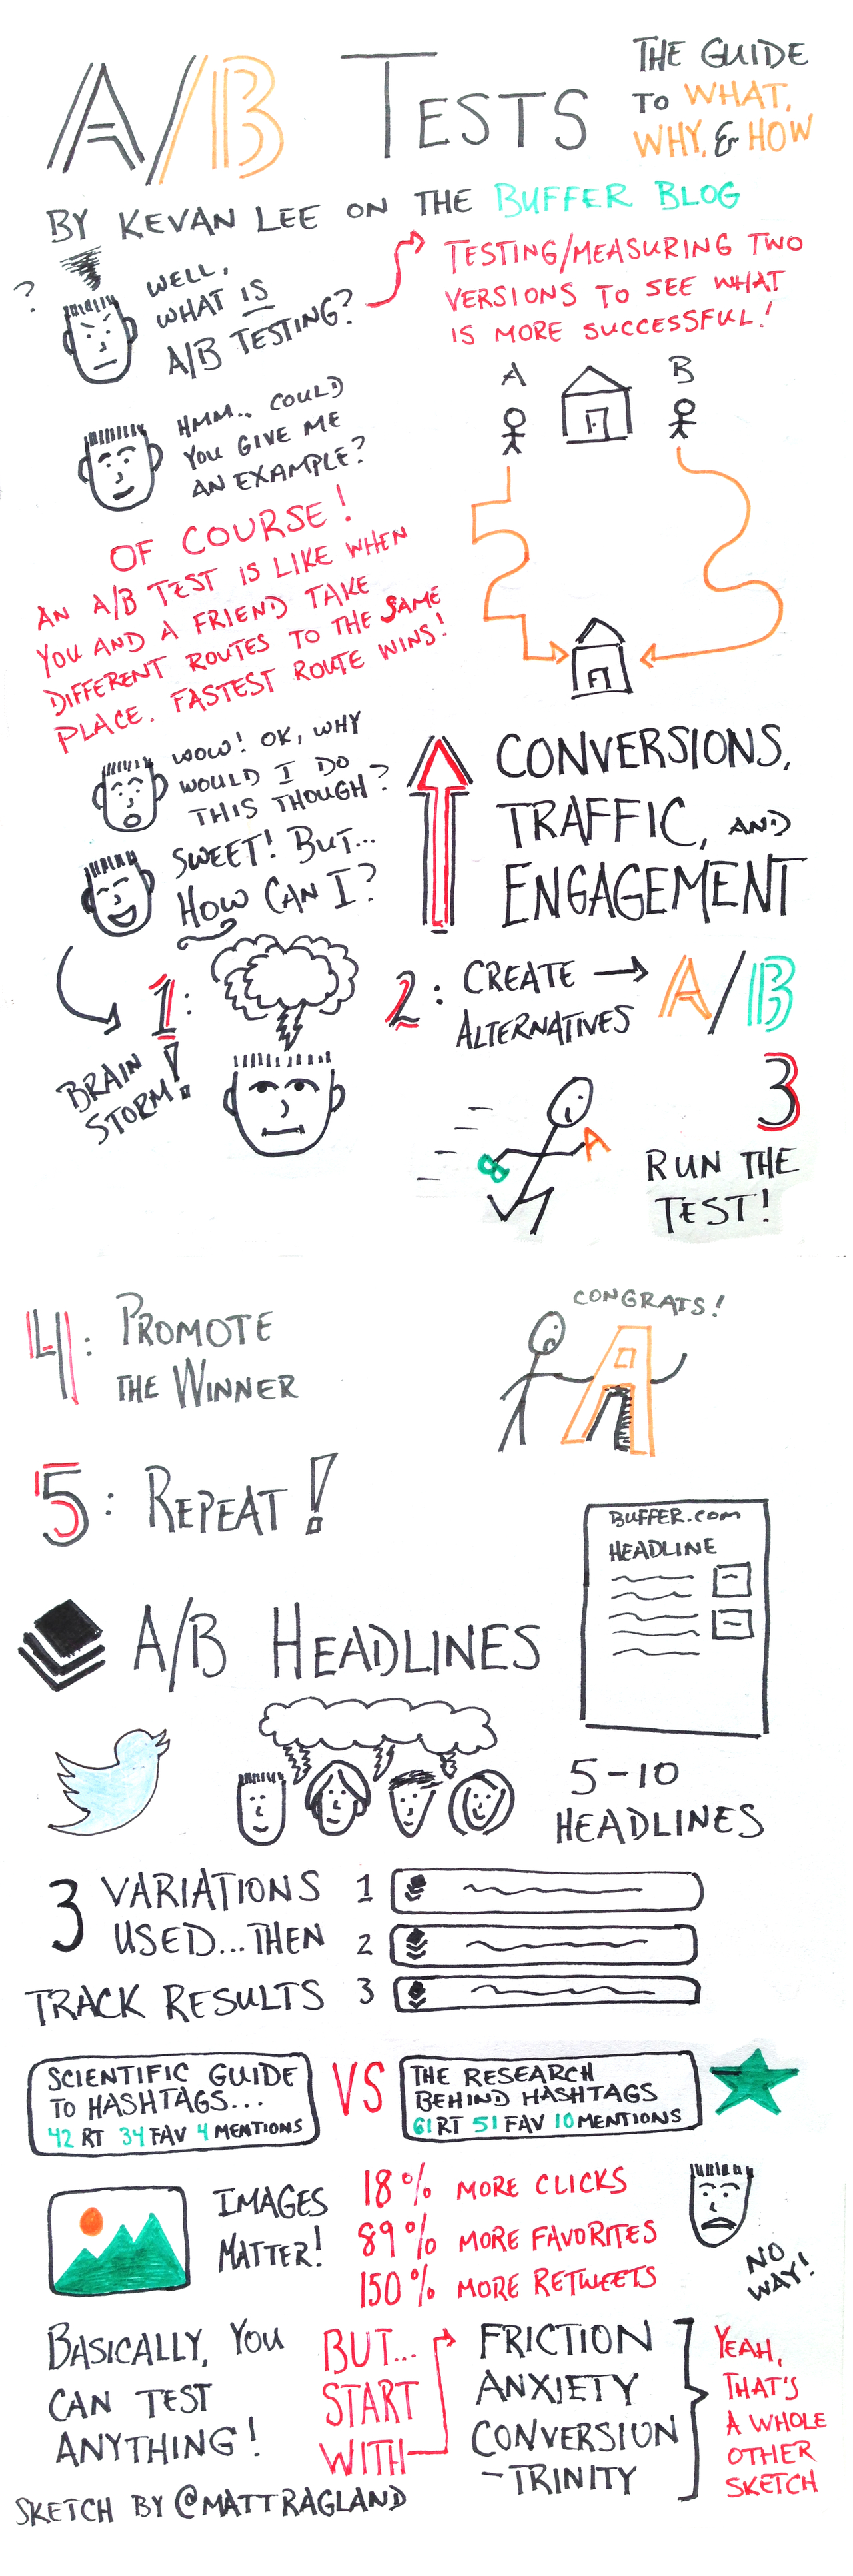 A/B TESTS
THE GUIDE
TO WHAT,
WHY, & HOW
BY KEVAN LEE ON THE BUFFER BLOG
?
WELL,
WHAT IS
A/B TESTING?
TESTING/MEASURING TWO
VERSIONS TO SEE WHAT
IS MORE SUCCESSFUL!
A
B
HMM.. COULD
YOU GIVE ME
AN EXAMPLE?
OF COURSE!
AN A/B TEST IS LIKE WHEN
YOU AND A FRIEND TAKE
DIFFERENT ROUTES TO THE SAME
PLACE. FASTEST ROUTE WINS!
WOW! OK, WHY
WOULD I DO
THIS THOUGH?
CONVERSIONS,
TRAFFIC, AND
ENGAGEMENT
SWEET! BUT...
HOW CAN I?
1:
BRAIN
STORM!
2: CREATE → A/B
ALTERNATIVES
3
RUN THE
TEST!
B
A
4: PROMOTE
THE WINNER
CONGRATS!
A
5: REPEAT!
BUFFER.COM
HEADLINE
A/B HEADLINES
5-10
HEADLINES
3 VARIATIONS
USED...THEN
TRACK RESULTS
1
2
3
SCIENTIFIC GUIDE
TO HASHTAGS...
42 RT 34 FAV 4 MENTIONS
VS
THE RESEARCH
BEHIND HASHTAGS
61 RT 51 FAV 10 MENTIONS
IMAGES
MATTER!
18% MORE CLICKS
89% MORE FAVORITES
150% MORE RETWEETS
NO
WAY!
BASICALLY, YOU
CAN TEST
ANYTHING!
BUT...
START
WITH
FRICTION
ANXIETY
CONVERSION
-TRINITY
YEAH,
THAT'S
A WHOLE
OTHER
SKETCH
SKETCH BY @MATTRAGLAND